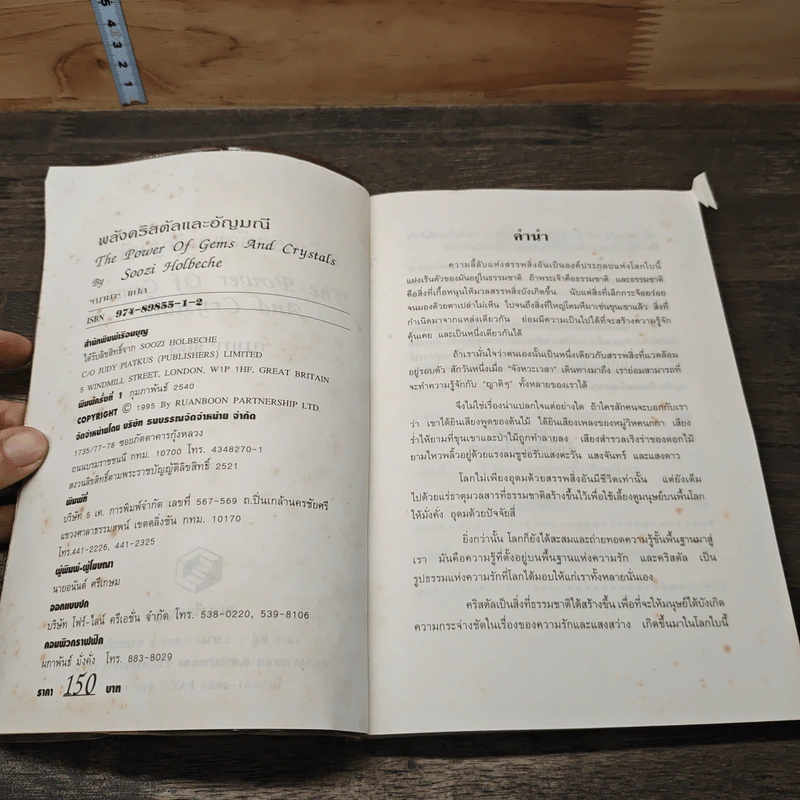 5
4
3
2
1
พลังคริสตัลและอัญมณี
The Power Of Gems And Crystals
By : Soozi Holbeche
แปล
ISBN 974-89855-1-2
สำนักพิมพ์เรือนบุญ
ได้รับลิขสิทธิ์จาก SOOZI HOLBECHE
C/O JUDY PIATKUS (PUBLISHERS) LIMITED
5 WINDMILL STREET, LONDON, W1P 1HF, GREAT BRITAIN
พิมพ์ครั้งที่ 1 กุมภาพันธ์ 2540
COPYRIGHT © 1995 By RUANBOON PARTNERSHIP LTD.
จัดจำหน่ายโดย บริษัท ธนบรรณจัดจำหน่าย จำกัด
1735/77-78 ซอยภัตตาคารกุ้งหลวง
ถนนบรมราชชนนี กทม. 10700 โทร. 4348270-1
สงวนลิขสิทธิ์ตามพระราชบัญญัติลิขสิทธิ์ 2521
พิมพ์ที่
บริษัท 5 เค. การพิมพ์จำกัด เลขที่ 567-569 ถ.ปิ่นเกล้านครชัยศรี
แขวงศาลาธรรมสพน์ เขตตลิ่งชัน กทม. 10170
โทร.441-2226, 441-2325
ผู้พิมพ์-ผู้โฆษณา
นายอนันต์ ศรีเกษม
ออกแบบปก
บริษัท โฟร์-ไลน์ ครีเอชั่น จำกัด โทร. 538-0220, 539-8106
คอมพิวกราฟฟิค
ผกาพันธ์ มั่งคั่ง โทร. 883-8029
ราคา 150 บาท
คำนำ
ความลี้ลับแห่งสรรพสิ่งอันเป็นองค์ประกอบแห่งโลกใบนี้
แฝงเร้นตัวของมันอยู่ในธรรมชาติ ถ้าพระเจ้าคือธรรมชาติ และธรรมชาติ
คือสิ่งที่เกื้อหนุนให้มวลสรรพสิ่งบังเกิดขึ้น นับแต่สิ่งที่เล็กกระจ้อยร่อย
จนมองด้วยตาเปล่าไม่เห็น ไปจนถึงสิ่งที่ใหญ่โตมหึมาเช่นขุนเขาแล้ว สิ่งที่
กำเนิดมาจากแหล่งเดียวกัน ย่อมมีความเป็นไปได้ที่จะสร้างความรู้จัก
คุ้นเคย และเป็นหนึ่งเดียวกันได้
ถ้าเรามั่นใจว่าตนเองนั้นเป็นหนึ่งเดียวกับสรรพสิ่งที่แวดล้อม
อยู่รอบตัว สักวันหนึ่งเมื่อ "จังหวะเวลา" เดินทางมาถึง เราย่อมสามารถที่
จะทำความรู้จักกับ "ญาติๆ" ทั้งหลายของเราได้
จึงไม่ใช่เรื่องน่าแปลกใจแต่อย่างใด ถ้าใครสักคนจะบอกกับเรา
ว่า เขาได้ยินเสียงพูดของต้นไม้ ได้ยินเสียงเพลงของหมู่วิหคนกกา เสียง
ร่ำไห้ยามที่ขุนเขาและป่าไม้ถูกทำลายลง เสียงสำรวลเริงร่าของดอกไม้
ยามไหวพลิ้วอยู่ด้วยแรงลมชูช่อรับแสงตะวัน แสงจันทร์ และแสงดาว
โลกไม่เพียงอุดมด้วยสรรพสิ่งอันมีชีวิตเท่านั้น แต่ยังเต็ม
ไปด้วยแร่ธาตุมวลสารที่ธรรมชาติสร้างขึ้นไว้เพื่อใช้เลี้ยงดูมนุษย์บนพื้นโลก
ให้มั่งคั่ง อุดมด้วยปัจจัยสี่
ยิ่งกว่านั้น โลกก็ยังได้สะสมและถ่ายทอดความรู้ขั้นพื้นฐานมาสู่
เรา มันคือความรู้ที่ตั้งอยู่บนพื้นฐานแห่งความรัก และคริสตัล เป็น
รูปธรรมแห่งความรักที่โลกได้มอบให้แก่เราทั้งหลายนั่นเอง
คริสตัลเป็นสิ่งที่ธรรมชาติได้สร้างขึ้น เพื่อที่จะให้มนุษย์ได้บังเกิด
ความกระจ่างชัดในเรื่องของความรักและแสงสว่าง เกิดขึ้นมาในโลกใบนี้